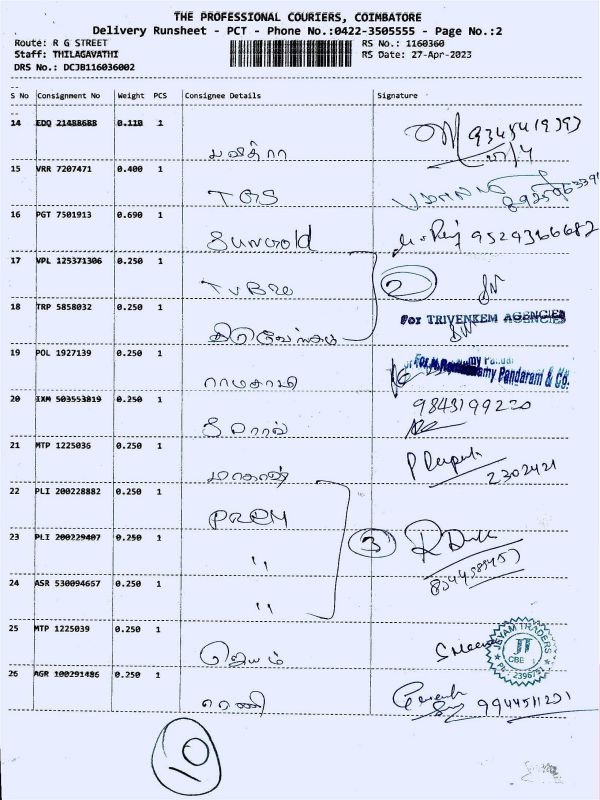 THE PROFESSIONAL COURIERS, COIMBATORE
Delivery Runsheet - PCT - Phone No.:0422-3505555 - Page No.:2
Route: R G STREET RS No.: 1160360
Staff: THILAGAVATHI RS Date: 27-Apr-2023
DRS No.: DCJB116036002
S No Consignment No Weight PCS Consignee Details Signature
14 EDQ 21488688 0.110 1
பவித்ரா
15 VRR 7207471 0.400 1
TGS
16 PGT 7501913 0.690 1
Sungold
17 VPL 125371306 0.250 1
2
18 TRP 5858032 0.250 1
For TRIVENKEM AGENCIES
19 POL 1927139 0.250 1
ராமசாமி Pandaram & Co.
20 IXM 503553819 0.250 1
9843199220
21 MTP 1225036 0.250 1
P Deepak
2302421
22 PLI 200228882 0.250 1
PREM
23 PLI 200229407 0.250 1
" 3
24 ASR 530094667 0.250 1
"
25 MTP 1225039 0.250 1
ஜெயம் JEYAM TRADERS JT CBE
26 AGR 100291486 0.250 1
ராணி 9944511201
10